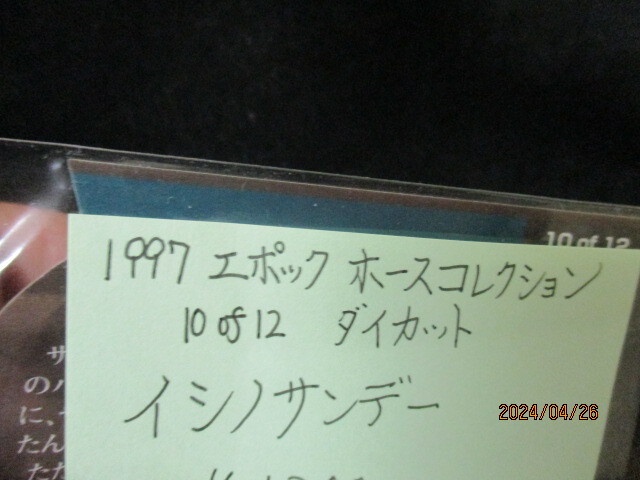 10 of 12
1997 エポック ホースコレクション
10 of 12 ダイカット
イシノサンデー
2024/04/26
サ
のバ
に、
たん
ただ